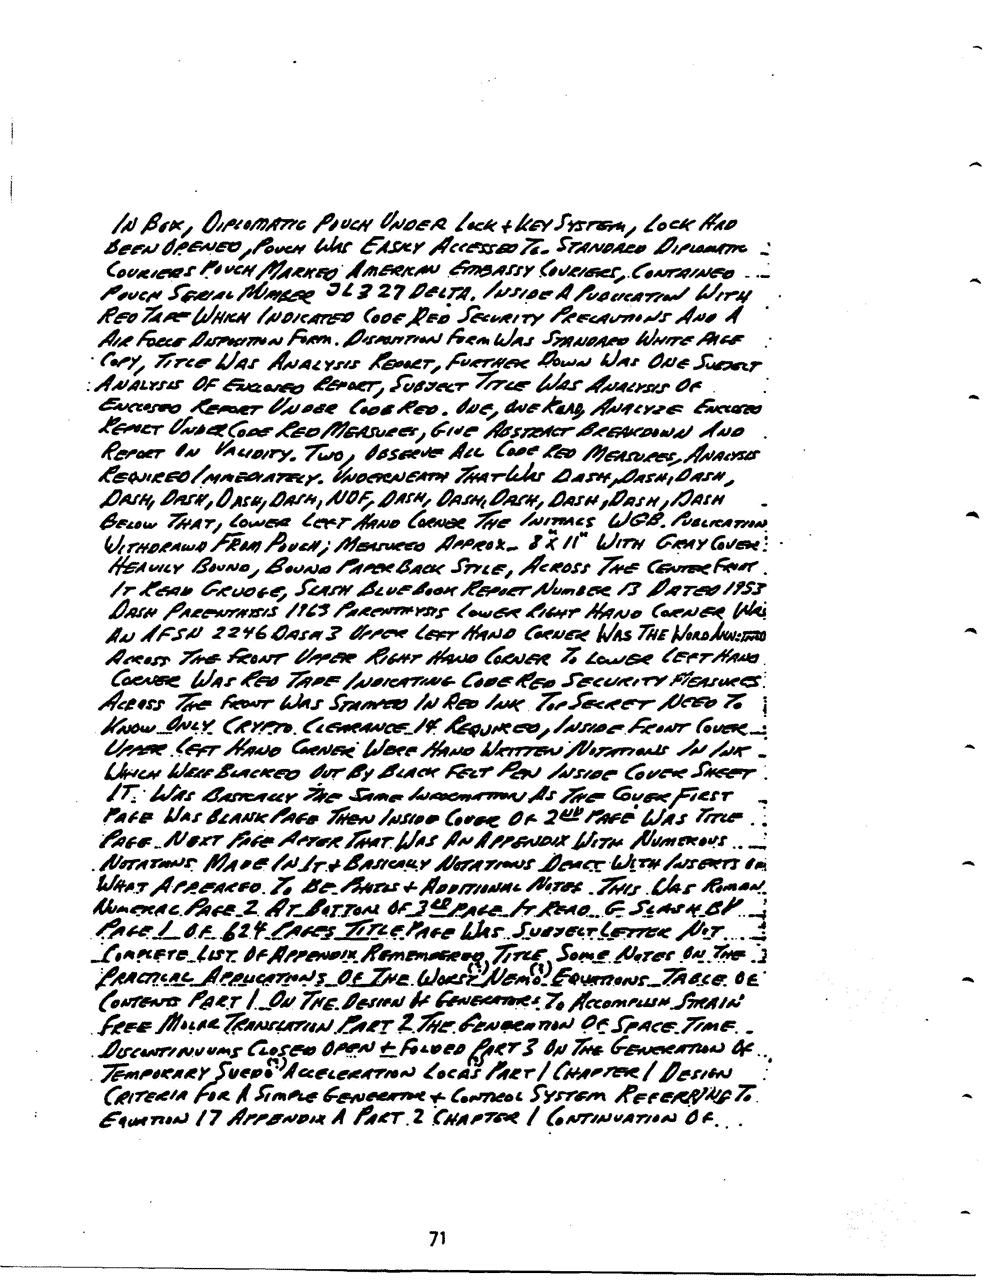 IN BOX, DIPLOMATIC POUCH UNDER LOCK + KEY SYSTEM, LOCK HAD
BEEN OPENED, POUCH WAS EASILY ACCESSED TO. STANDARD DIPLOMATIC
COURIERS POUCH MARKED AMERICAN EMBASSY COURIERS, CONTAINED
POUCH SERIAL NUMBER JL327 DELTA. INSIDE A PUBLICATION WITH
RED TAPE WHICH INDICATED CODE RED SECURITY PRECAUTIONS AND A
AIR FORCE DISPOSITION FORM. DISPOSITION FORM WAS STANDARD WHITE PAGE
COPY, TITLE WAS ANALYSIS REPORT, FURTHER DOWN WAS ONE SUBJECT
ANALYSIS OF ENCLOSED REPORT, SUBJECT TITLE WAS ANALYSIS OF
ENCLOSED REPORT UNDER CODE RED. ONE, ONE READ, ANALYZE ENCLOSED
REPORT UNDER CODE RED MEASURES, GIVE ABSTRACT BREAKDOWN AND
REPORT ON VALIDITY. TWO, OBSERVE ALL CODE RED MEASURES, ANALYSIS
REQUIRED IMMEDIATELY. UNDERNEATH THAT WAS DASH, DASH, DASH,
DASH, DASH, DASH, DASH, NDF, DASH, DASH, DASH, DASH, DASH, DASH
BELOW THAT, LOWER LEFT HAND CORNER THE INITIALS WGB. PUBLICATION
WITHDRAWN FROM POUCH; MEASURED APPROX. 8" X 11" WITH GRAY COVER.
HEAVILY BOUND, BOUND PAPER BACK STYLE, ACROSS THE CENTER FRONT
IT READ GRUDGE, SLASH BLUE BOOK REPORT NUMBER 13 DATED 1953
DASH PARENTHISIS 1963 PARENTHYSIS LOWER RIGHT HAND CORNER WAS
AN AFSN 2246 DASH 3 UPPER LEFT HAND CORNER WAS THE WORD ANNOTATED
ACROSS THE FRONT UPPER RIGHT HAND CORNER TO LOWER LEFT HAND
CORNER WAS RED TAPE INDICATING CODE RED SECURITY MEASURES
ACROSS THE FRONT WAS STAMPED IN RED INK TOP SECRET NEED TO
KNOW ONLY CRYPTO CLEARANCE 14 REQUIRED, INSIDE FRONT COVER
UPPER LEFT HAND CORNER WERE HAND WRITTEN NOTATIONS IN INK
WHICH WERE BLACKED OUT BY BLACK FELT PEN INSIDE COVER SHEET
IT WAS BASICALLY THE SAME INFORMATION AS THE COVER FIRST
PAGE WAS BLANK PAGE THEN INSIDE COVER OR 2ND PAGE WAS TITLE
PAGE NEXT PAGE AFTER THAT WAS AN APPENDIX WITH NUMEROUS
NOTATIONS MADE IN IT + BASICALLY NOTATIONS DEALT WITH INSERTS ON
WHAT APPEARED TO BE PHOTOS + ADDITIONAL NOTES THIS WAS ROMAN
NUMERAL PAGE 2 AT BOTTOM OF 3RD PAGE IT READ G SLASH BV
PAGE 1 OF 624 PAGES TITLE PAGE WAS SUBJECT LETTER NOT
COMPLETE LIST OF APPENDIX REMEMBERED TITLE, SOME NOTES ON THE
PRACTICAL APPLICATIONS OF THE WORST (?) NEMO (?) EQUATIONS TABLE OF
CONTENTS PART 1 ON THE DESIGN OF GENERATORS TO ACCOMPLISH STRAIN
FREE MOLAR TRANSLATION PART 2 THE GENERATION OF SPACE TIME
DISCONTINUUMS CLOSED OPEN + FOLDED PART 3 ON THE GENERATION OF
TEMPORARY SUEDO (?) ACCELERATION LOCAS (?) PART 1 CHAPTER 1 DESIGN
CRITERIA FOR A SIMPLE GENERATOR + CONTROL SYSTEM REFERRING TO
EQUATION 17 APPENDIX A PART 2 CHAPTER 1 CONTINUATION OF...
71